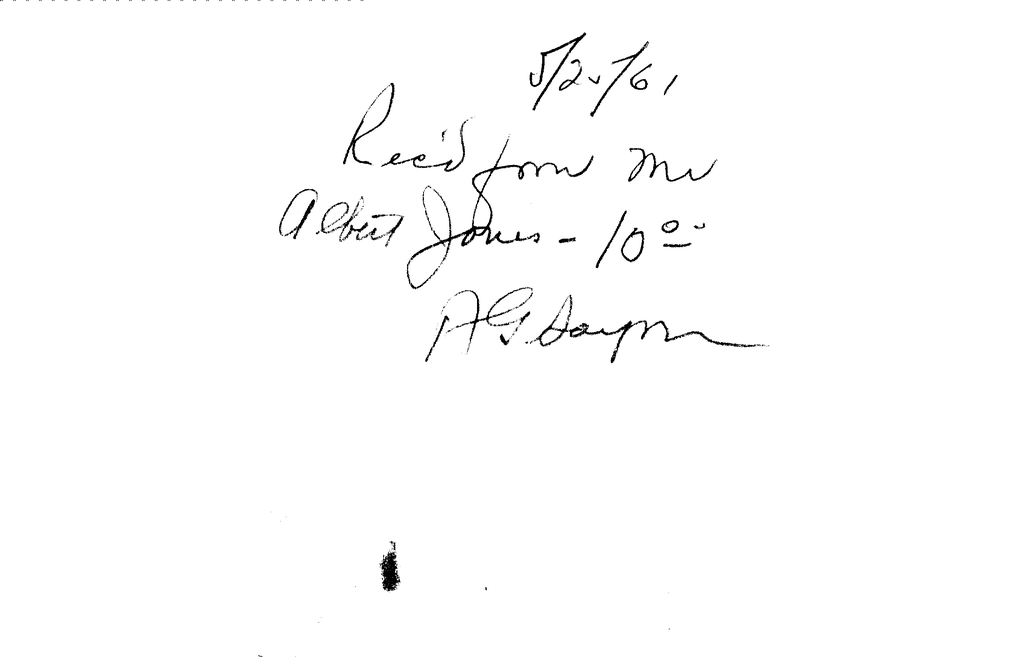 5/20/61
Rec'd from Mr
Albert Jones - 10 00
A G